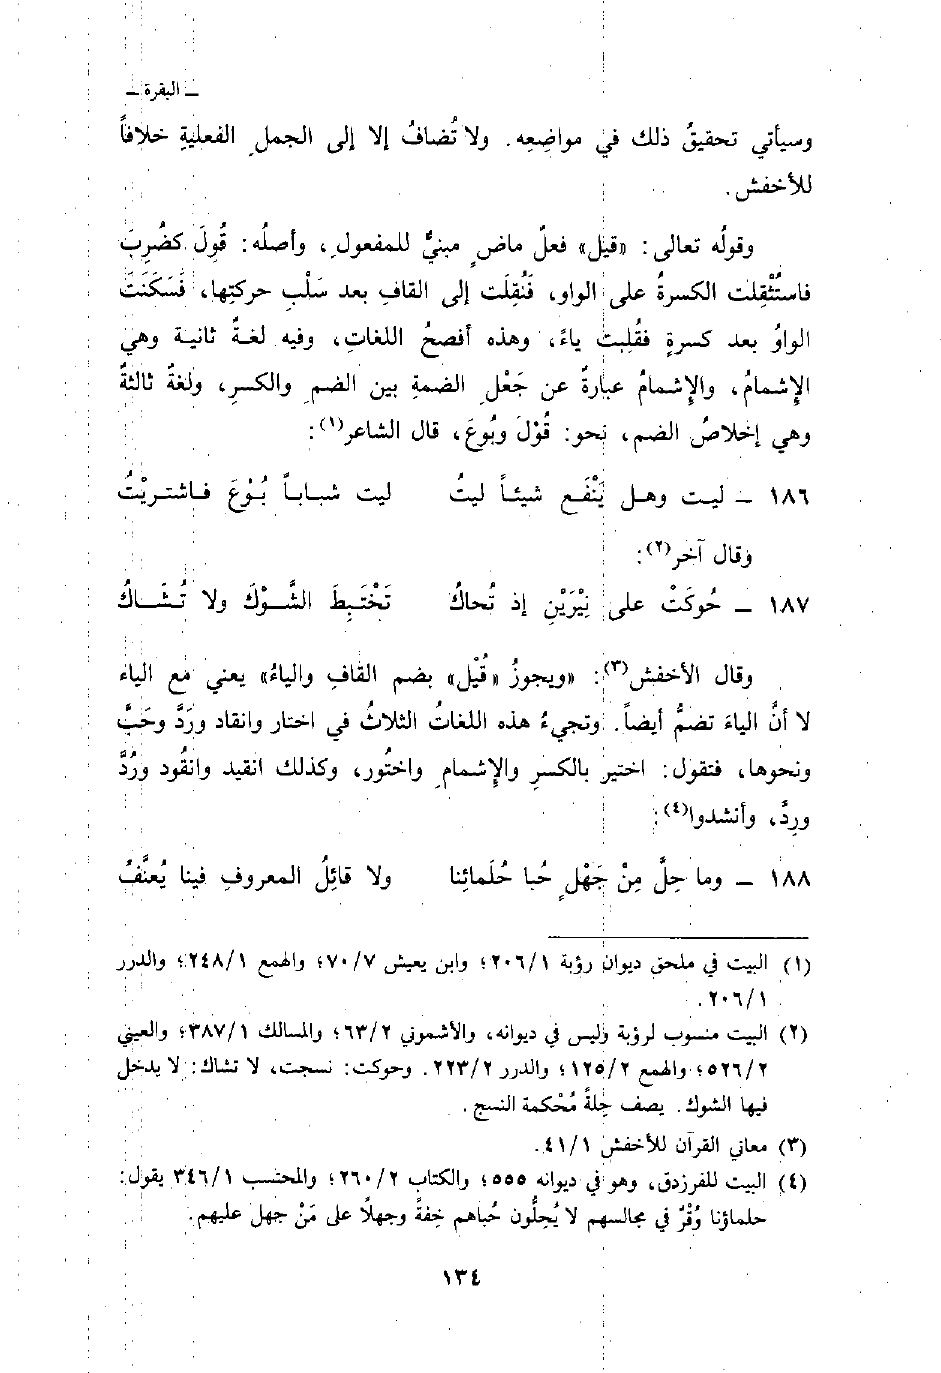 ـ البقرة ـ
وسيأتي تحقيقُ ذلك في مواضِعِه. ولا تُضافُ إلا إلى الجملِ الفعليةِ خلافاً
للأخفش.
وقولُه تعالى: «قيل» فعلٌ ماضٍ مبنيٌّ للمفعولِ، وأصلُه: قُوِلَ كضُرِبَ
فاستُثْقِلت الكسرةُ على الواو، فَنُقِلَت إلى القافِ بعد سَلْبِ حركتِها، فَسَكَنَت
الواوُ بعد كسرةٍ فقُلِبت ياءً، وهذه أفصحُ اللغاتِ، وفيه لغةٌ ثانية وهي
الإِشمامُ، والإِشمامُ عبارةٌ عن جَعْلِ الضمةِ بين الضمِ والكسرِ، ولغةٌ ثالثةٌ
وهي إخلاصُ الضم، نحو: قُوْلَ وبُوعَ، قال الشاعر(١):
١٨٦ ـ ليت وهل يَنْفَع شيئاً ليتُ ليت شباباً بُوْعَ فاشتريْتُ
وقال آخر(٢):
١٨٧ ـ حُوكَتْ على نِيْرَيْنِ إذ تُحاكُ تَخْتَبِطَ الشَّوْكَ ولا تُشَاكُ
وقال الأخفش(٣): «ويجوزُ «قُيْل» بضم القافِ والياءُ» يعني مع الياء
لا أنَّ الياءَ تضمُّ أيضاً. وتجيءُ هذه اللغاتُ الثلاثُ في اختار وانقاد وردَّ وحَبَّ
ونحوها، فتقول: اختير بالكسرِ والإِشمامِ واختُور، وكذلك انقيد وانقُود ورُدَّ
ورِدَّ، وأنشدوا(٤):
١٨٨ ـ وما حِلَّ مِنْ جَهْلٍ حُبا حُلَمائِنا ولا قائِلُ المعروفِ فينا يُعنَّفُ
(١) البيت في ملحق ديوان رؤبة ٢٠٦/١؛ وابن يعيش ٧٠/٧؛ والهمع ٢٤٨/١؛ والدرر
٢٠٦/١.
(٢) البيت منسوب لرؤبة وليس في ديوانه، والأشموني ٦٣/٢؛ والمسالك ٣٨٧/١؛ والعيني
٥٢٦/٢؛ والهمع ١٢٥/٢؛ والدرر ٢٢٣/٢. وحوكت: نسجت، لا تشاك: لا يدخل
فيها الشوك. يصف حِلةً مُحْكمة النسج.
(٣) معاني القرآن للأخفش ٤١/١.
(٤) البيت للفرزدق، وهو في ديوانه ٥٥٥؛ والكتاب ٢٦٠/٢؛ والمحتسب ٣٤٦/١ يقول:
حلماؤنا وُقُرٌ في مجالسهم لا يُحِلُّون حُباهم خِفةً وجهلاً على مَنْ جهل عليهم.
١٣٤